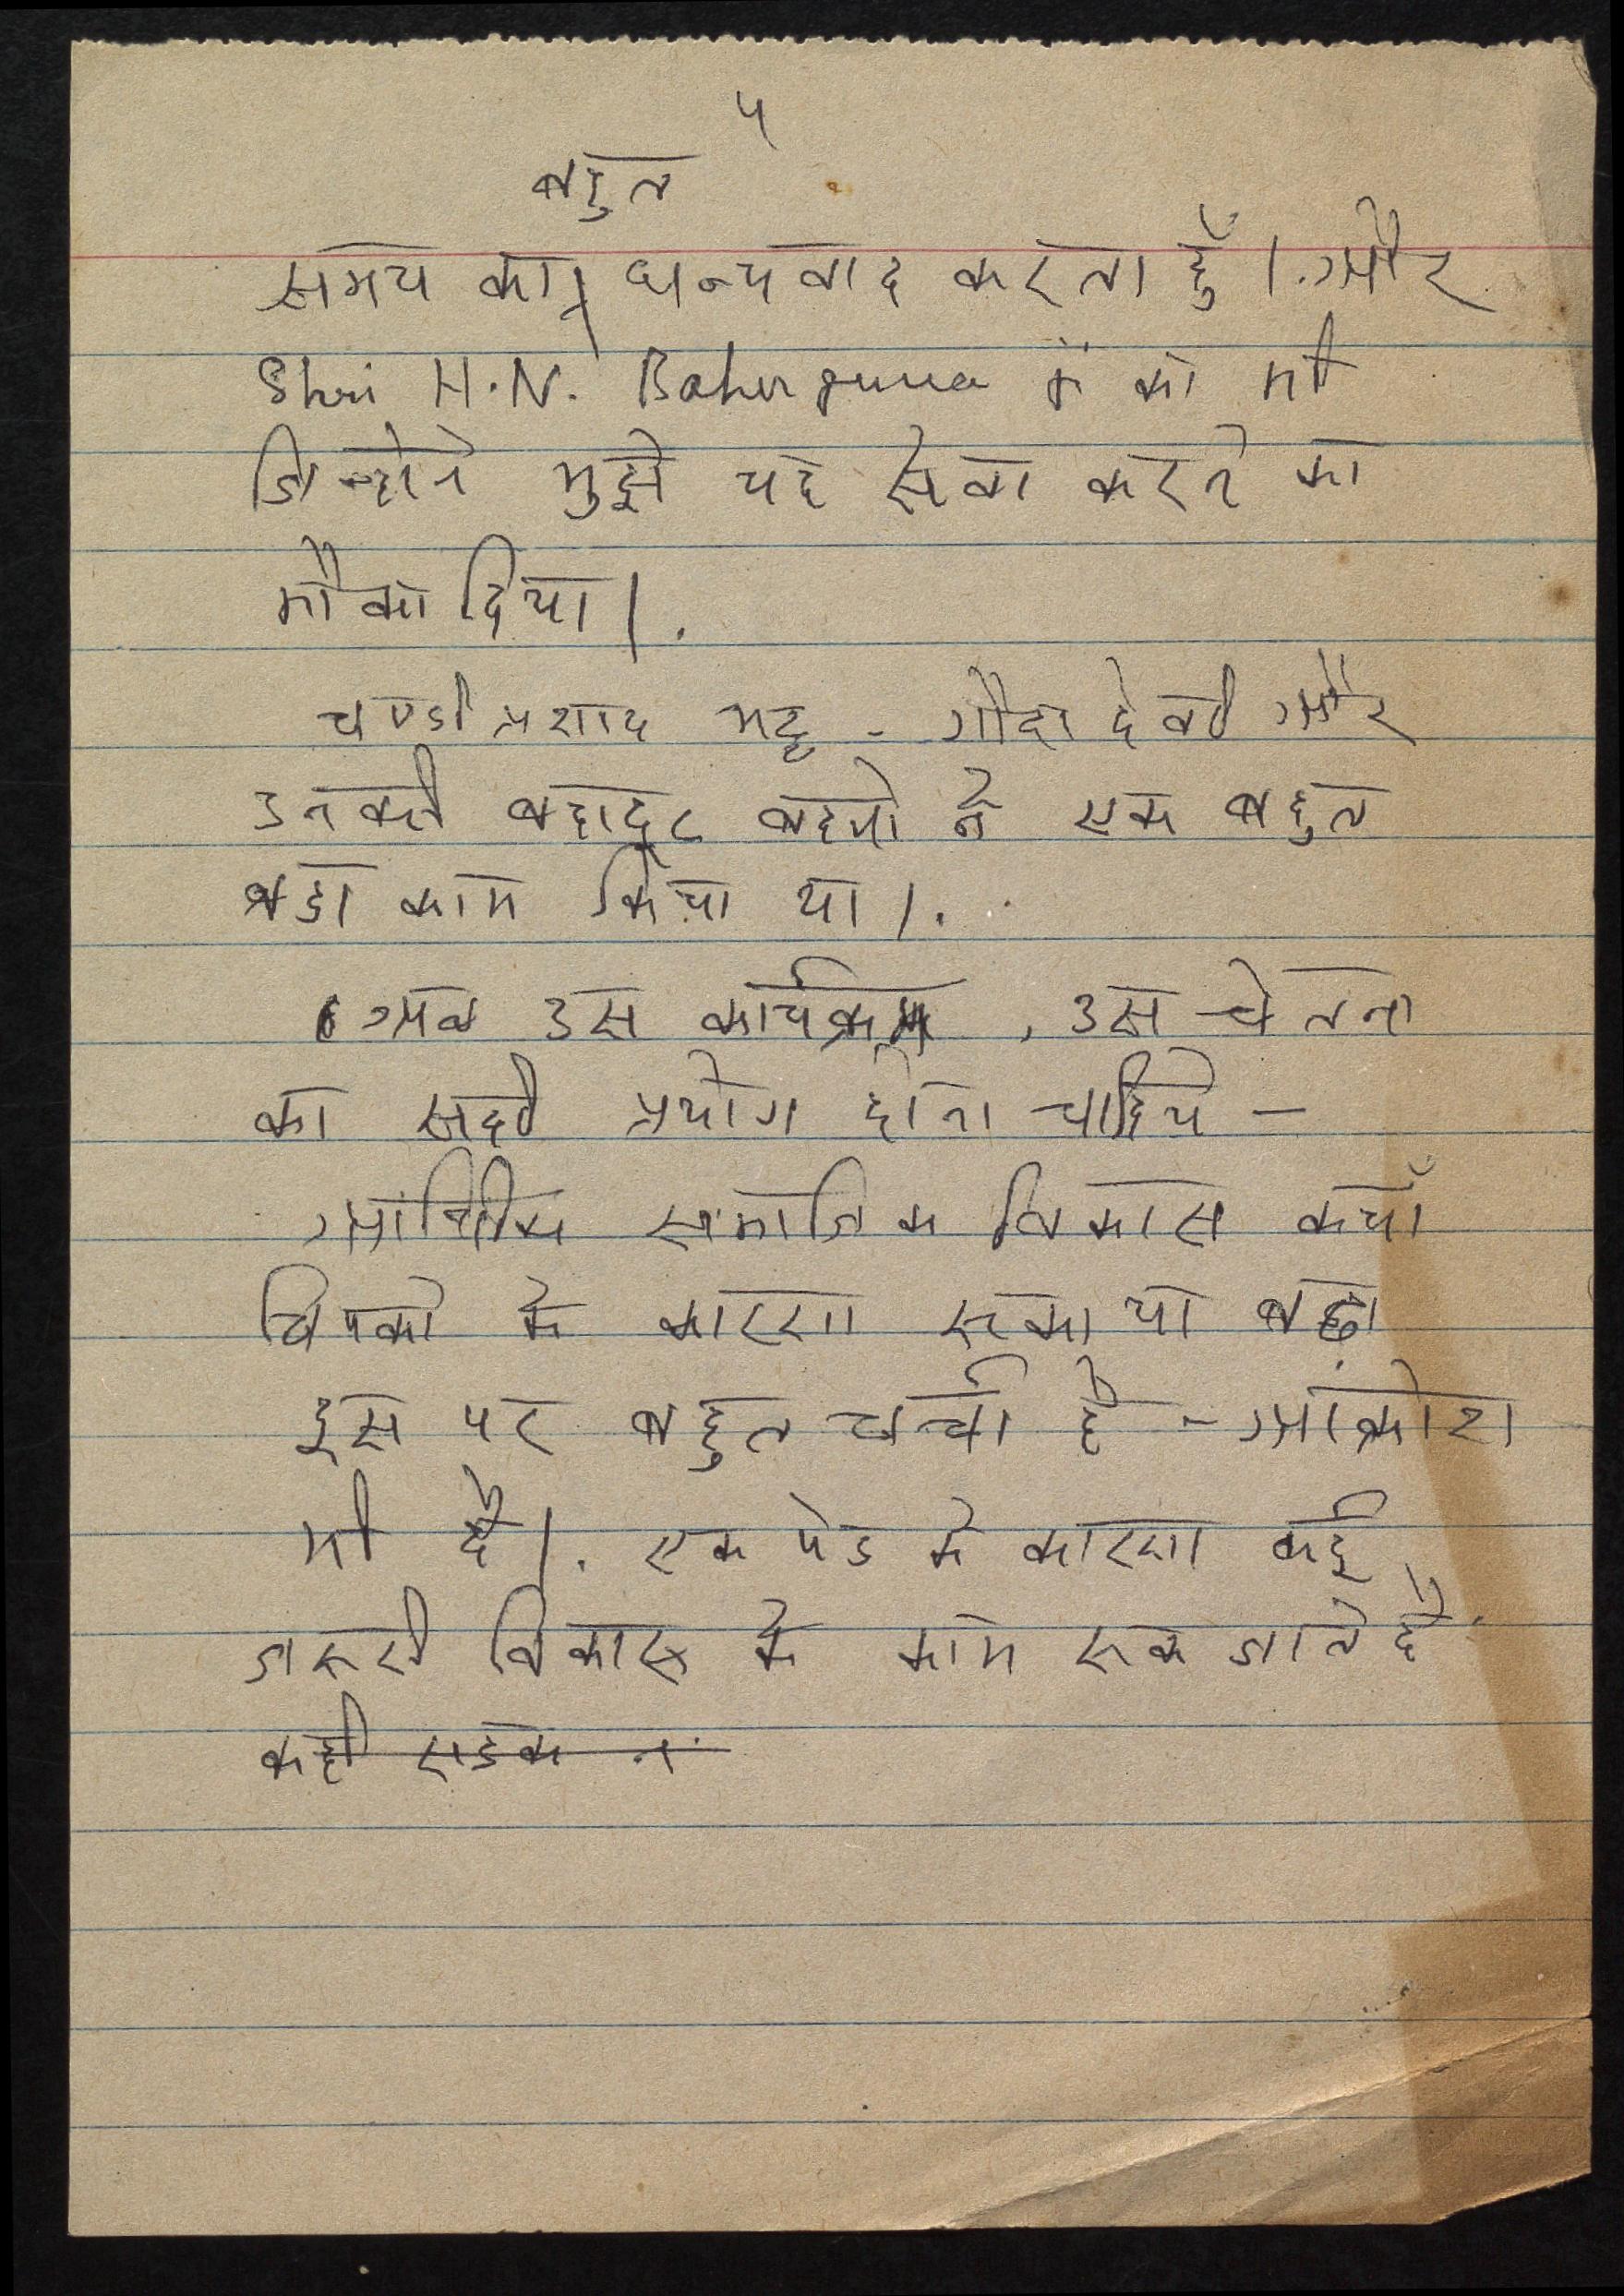 ५
बहुत
समय का धन्यवाद करता हूँ। और
Shri H.N. Bahuguna को भी
जिन्होने मुझे यह सेवा करने का
मौका दिया।.
चण्डीप्रशाद भट्ट - गौदा देवी और
उनकी बहादुर बहनो ने एक बहुत
बडा काम किया था।.
अब उस कार्यक्रम, उस चेतना
का सही प्रयोग होना चाहिये -
आर्थिक समाजिक विकास क्याँ
चिपको के कारण रूका या बढा
इस पर बहुत चर्चा है - आक्रोश
भी है।. एक पेड के कारण कई
जरूरी विकास के काम रूक जाते है
कही सडक न